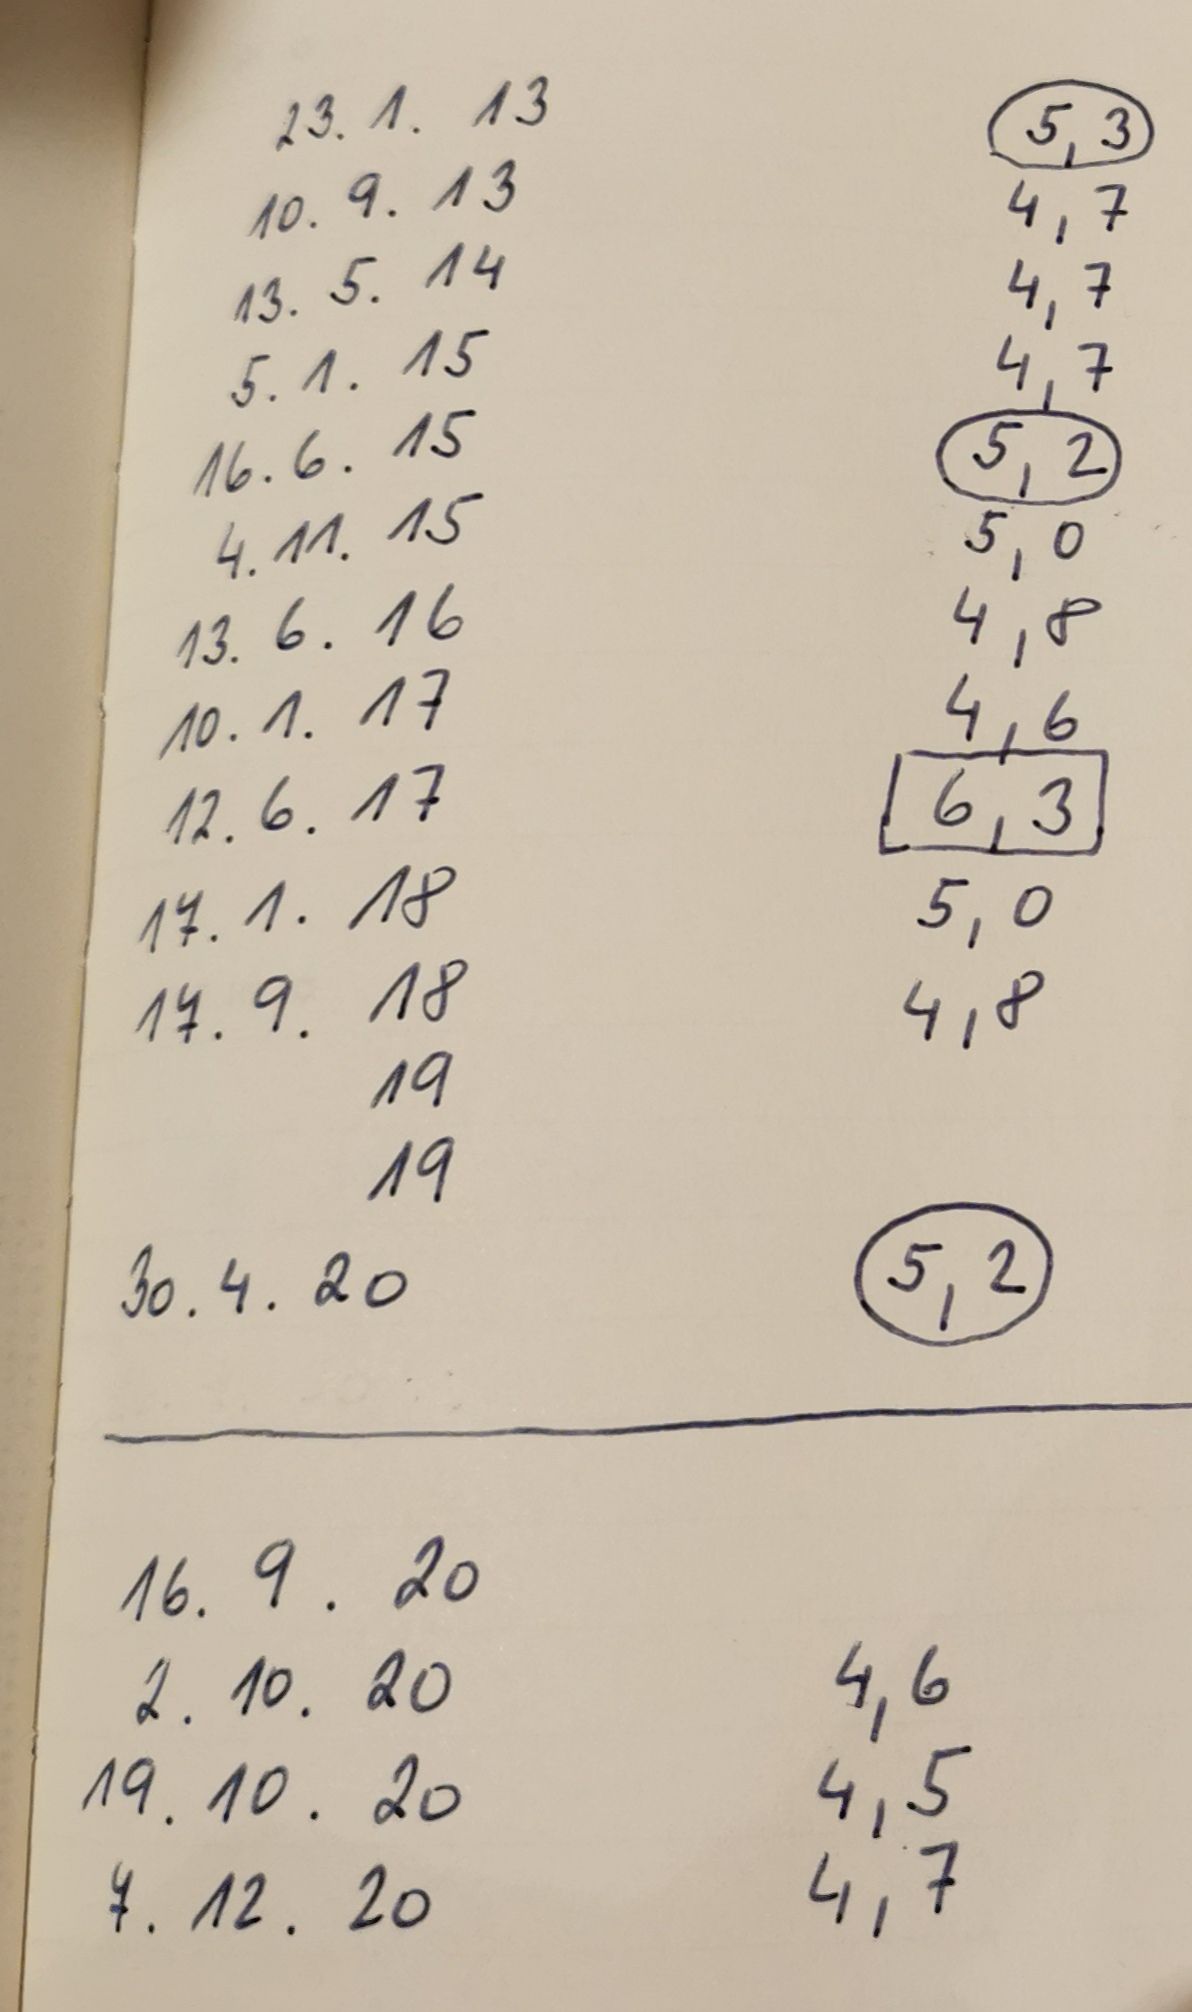 23. 1. 13 5,3
10. 9. 13 4,7
13. 5. 14 4,7
5. 1. 15 4,7
16. 6. 15 5,2
4. 11. 15 5,0
13. 6. 16 4,8
10. 1. 17 4,6
12. 6. 17 6,3
17. 1. 18 5,0
17. 9. 18 4,8
19
19
30. 4. 20 5,2
16. 9. 20
2. 10. 20 4,6
19. 10. 20 4,5
7. 12. 20 4,7